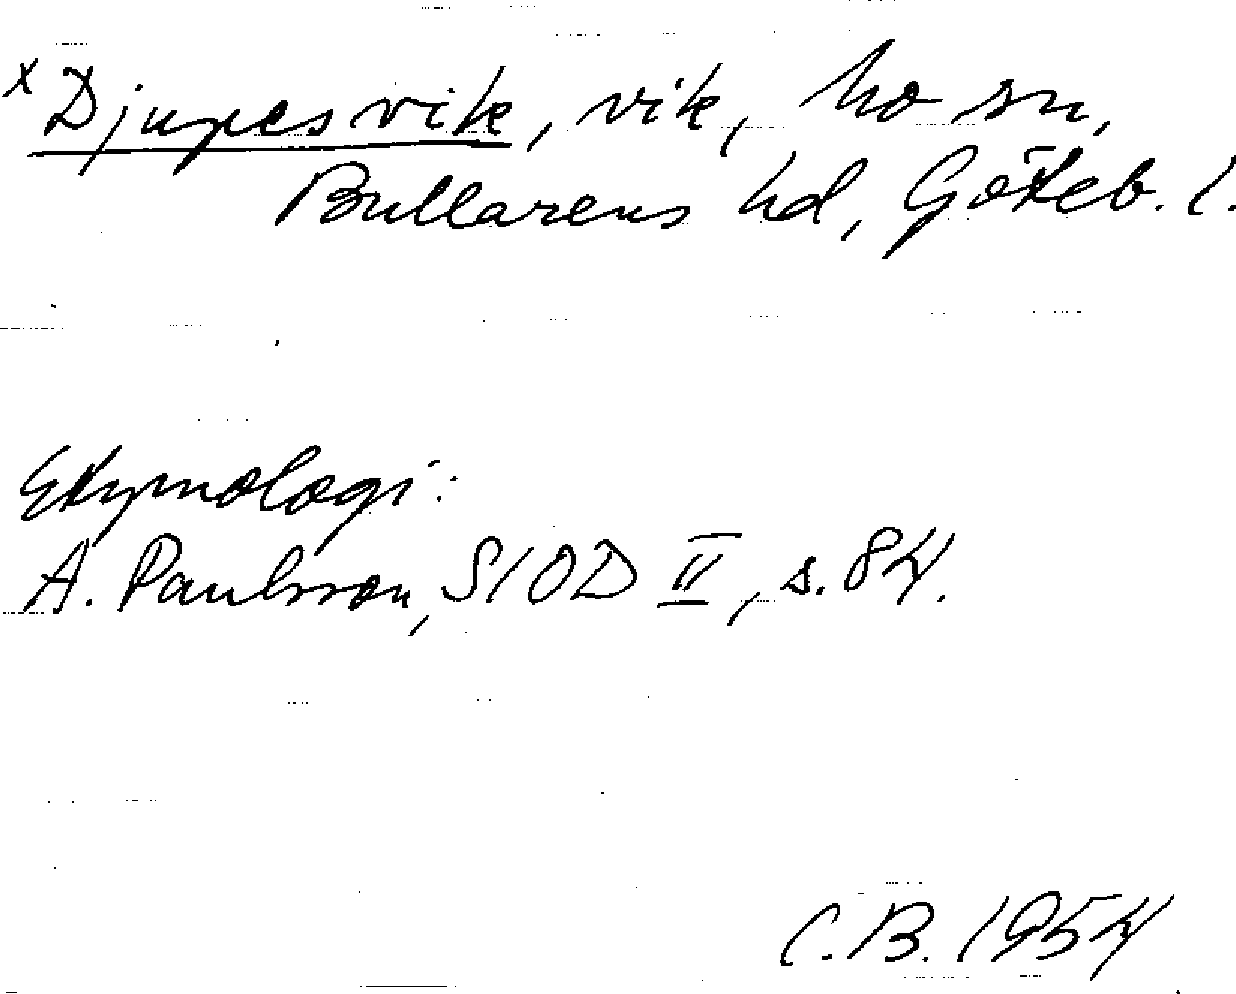 x Djupesvik, vik, ho sn,
Bullarens hd, Göteb. l.
Etymologi:
A. Paulsson, SIOD II, s. 84.
C.B. 1954